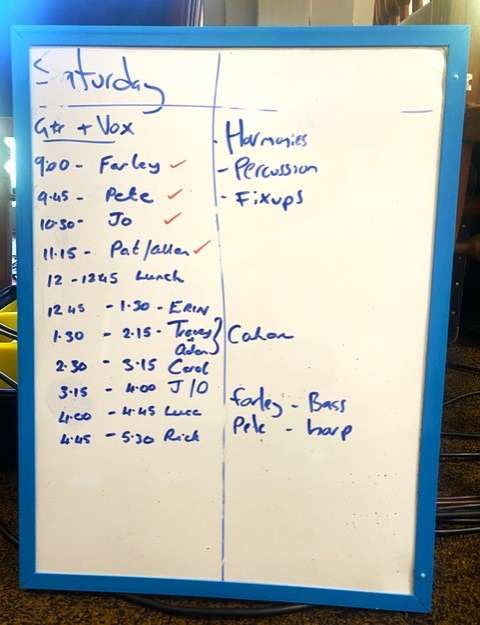 Saturday
Gtr + Vox
9:00 - Farley ✓
9.45 - Pete ✓
10.30 - Jo ✓
11.15 - Pat/allan ✓
12 - 1245 Lunch
12 45 - 1.30 - ERIN
1.30 - 2.15 -
2.30 - 3.15 Carol
3.15 - 4.00 J/O
4.00 - 4.45
4.45 - 5.30 Rick
- Harmonies
- Percussion
- Fixups
Farley - Bass
Pete - harp